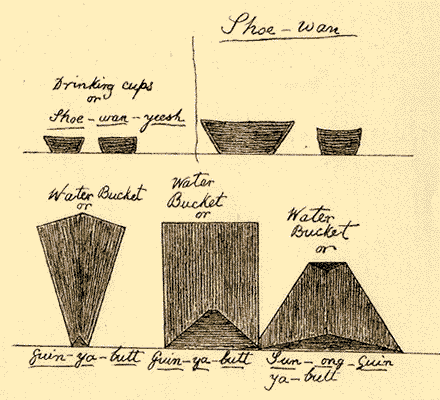 Shoe-wan
Drinking cups
or
Shoe-wan-yeesh
Water Bucket
or
Guin-ya-butt
Water
Bucket
or
Guin-ya-butt
Water
Bucket
or
Sun-ong-Guin
ya-butt